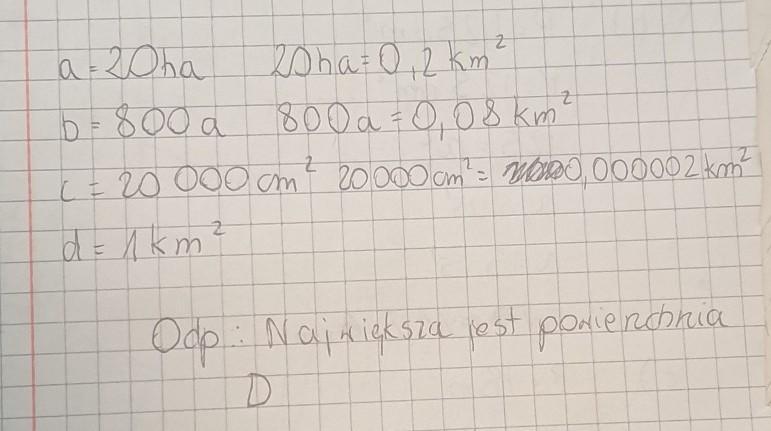 a = 20ha 20ha = 0,2 km²
b = 800a 800a = 0,08 km²
c = 20 000 cm² 20000 cm² = 0,000002 km²
d = 1 km²
Odp: Największa jest powierzchnia
D